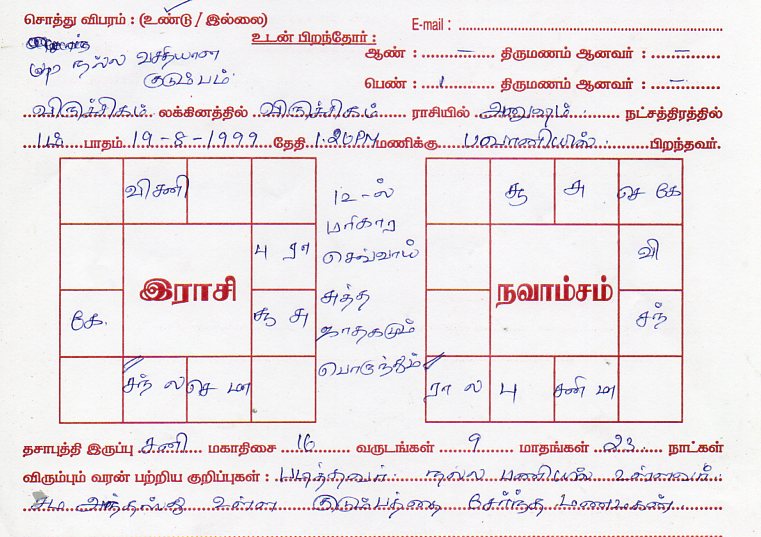 சொத்து விபரம் : (உண்டு / இல்லை)
E-mail :
உடன் பிறந்தோர் :
நல்ல வசதியான
குடும்பம்.
ஆண் : – திருமணம் ஆனவர் : –
பெண் : 1 திருமணம் ஆனவர் : –
விருச்சிகம் லக்கினத்தில் விருச்சிகம் ராசியில் அனுஷம் நட்சத்திரத்தில்
1ம் பாதம் 19-8-1999 தேதி 1.20PM மணிக்கு பவானியில் பிறந்தவர்.
வி சனி
பு ரா
இராசி
கே.
சூ சு
சந் ல
செ மா
12-ல்
பரிகார
செவ்வாய்
சுத்த
ஜாதகமும்
பொருந்தும்
சூ
அ
செ கே
வி
நவாம்சம்
சந்
ரா ல
பு
சனி மா
தசாபுத்தி இருப்பு சனி மகாதிசை 16 வருடங்கள் 9 மாதங்கள் 23 நாட்கள்
விரும்பும் வரன் பற்றிய குறிப்புகள் : படித்தவர் நல்ல பணியில் உள்ளவர்.
சம அந்தஸ்து உள்ள குடும்பத்தை சேர்ந்த மணமகன்